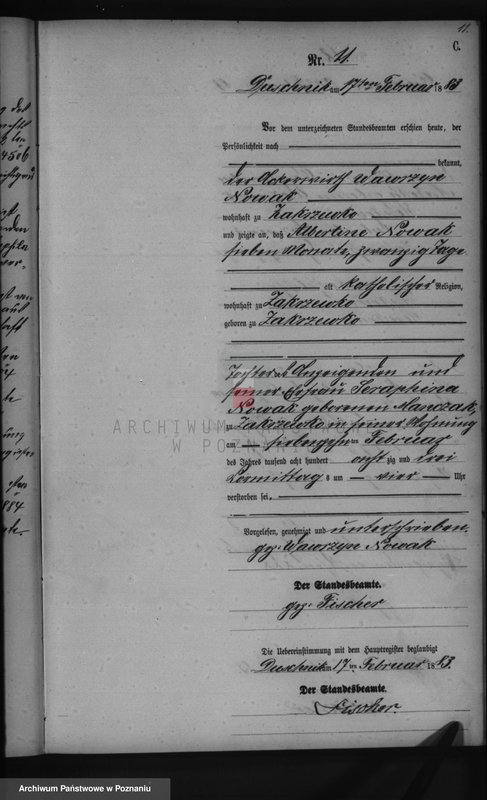 11.
C.
Nr. 11.
Duschnik am 17ten Februar 1883
Vor dem unterzeichneten Standesbeamten erschien heute, der
Persönlichkeit nach
bekannt,
der Ackerwirth Wawrzyn
Nowak
wohnhaft zu Zakrzewko
und zeigte an, daß Albertine Nowak
sieben Monate, zwanzig Tage
alt katholischer Religion,
wohnhaft zu Zakrzewko
geboren zu Zakrzewko
Tochter des Anzeigenden und
seiner Ehefrau Seraphina
Nowak geborenen Manczak,
zu Zakrzewko in seiner Wohnung
am siebenzehnten Februar
des Jahres tausend acht hundert acht zig und drei
Vormittags um vier Uhr
verstorben sei.
Vorgelesen, genehmigt und unterschrieben.
gez. Wawrzyn Nowak
Der Standesbeamte.
gez. Fischer
Die Uebereinstimmung mit dem Hauptregister beglaubigt
Duschnik am 17ten Februar 1883.
Der Standesbeamte.
Fischer.
ARCHIWUM
W POZNANIU
Archiwum Państwowe w Poznaniu